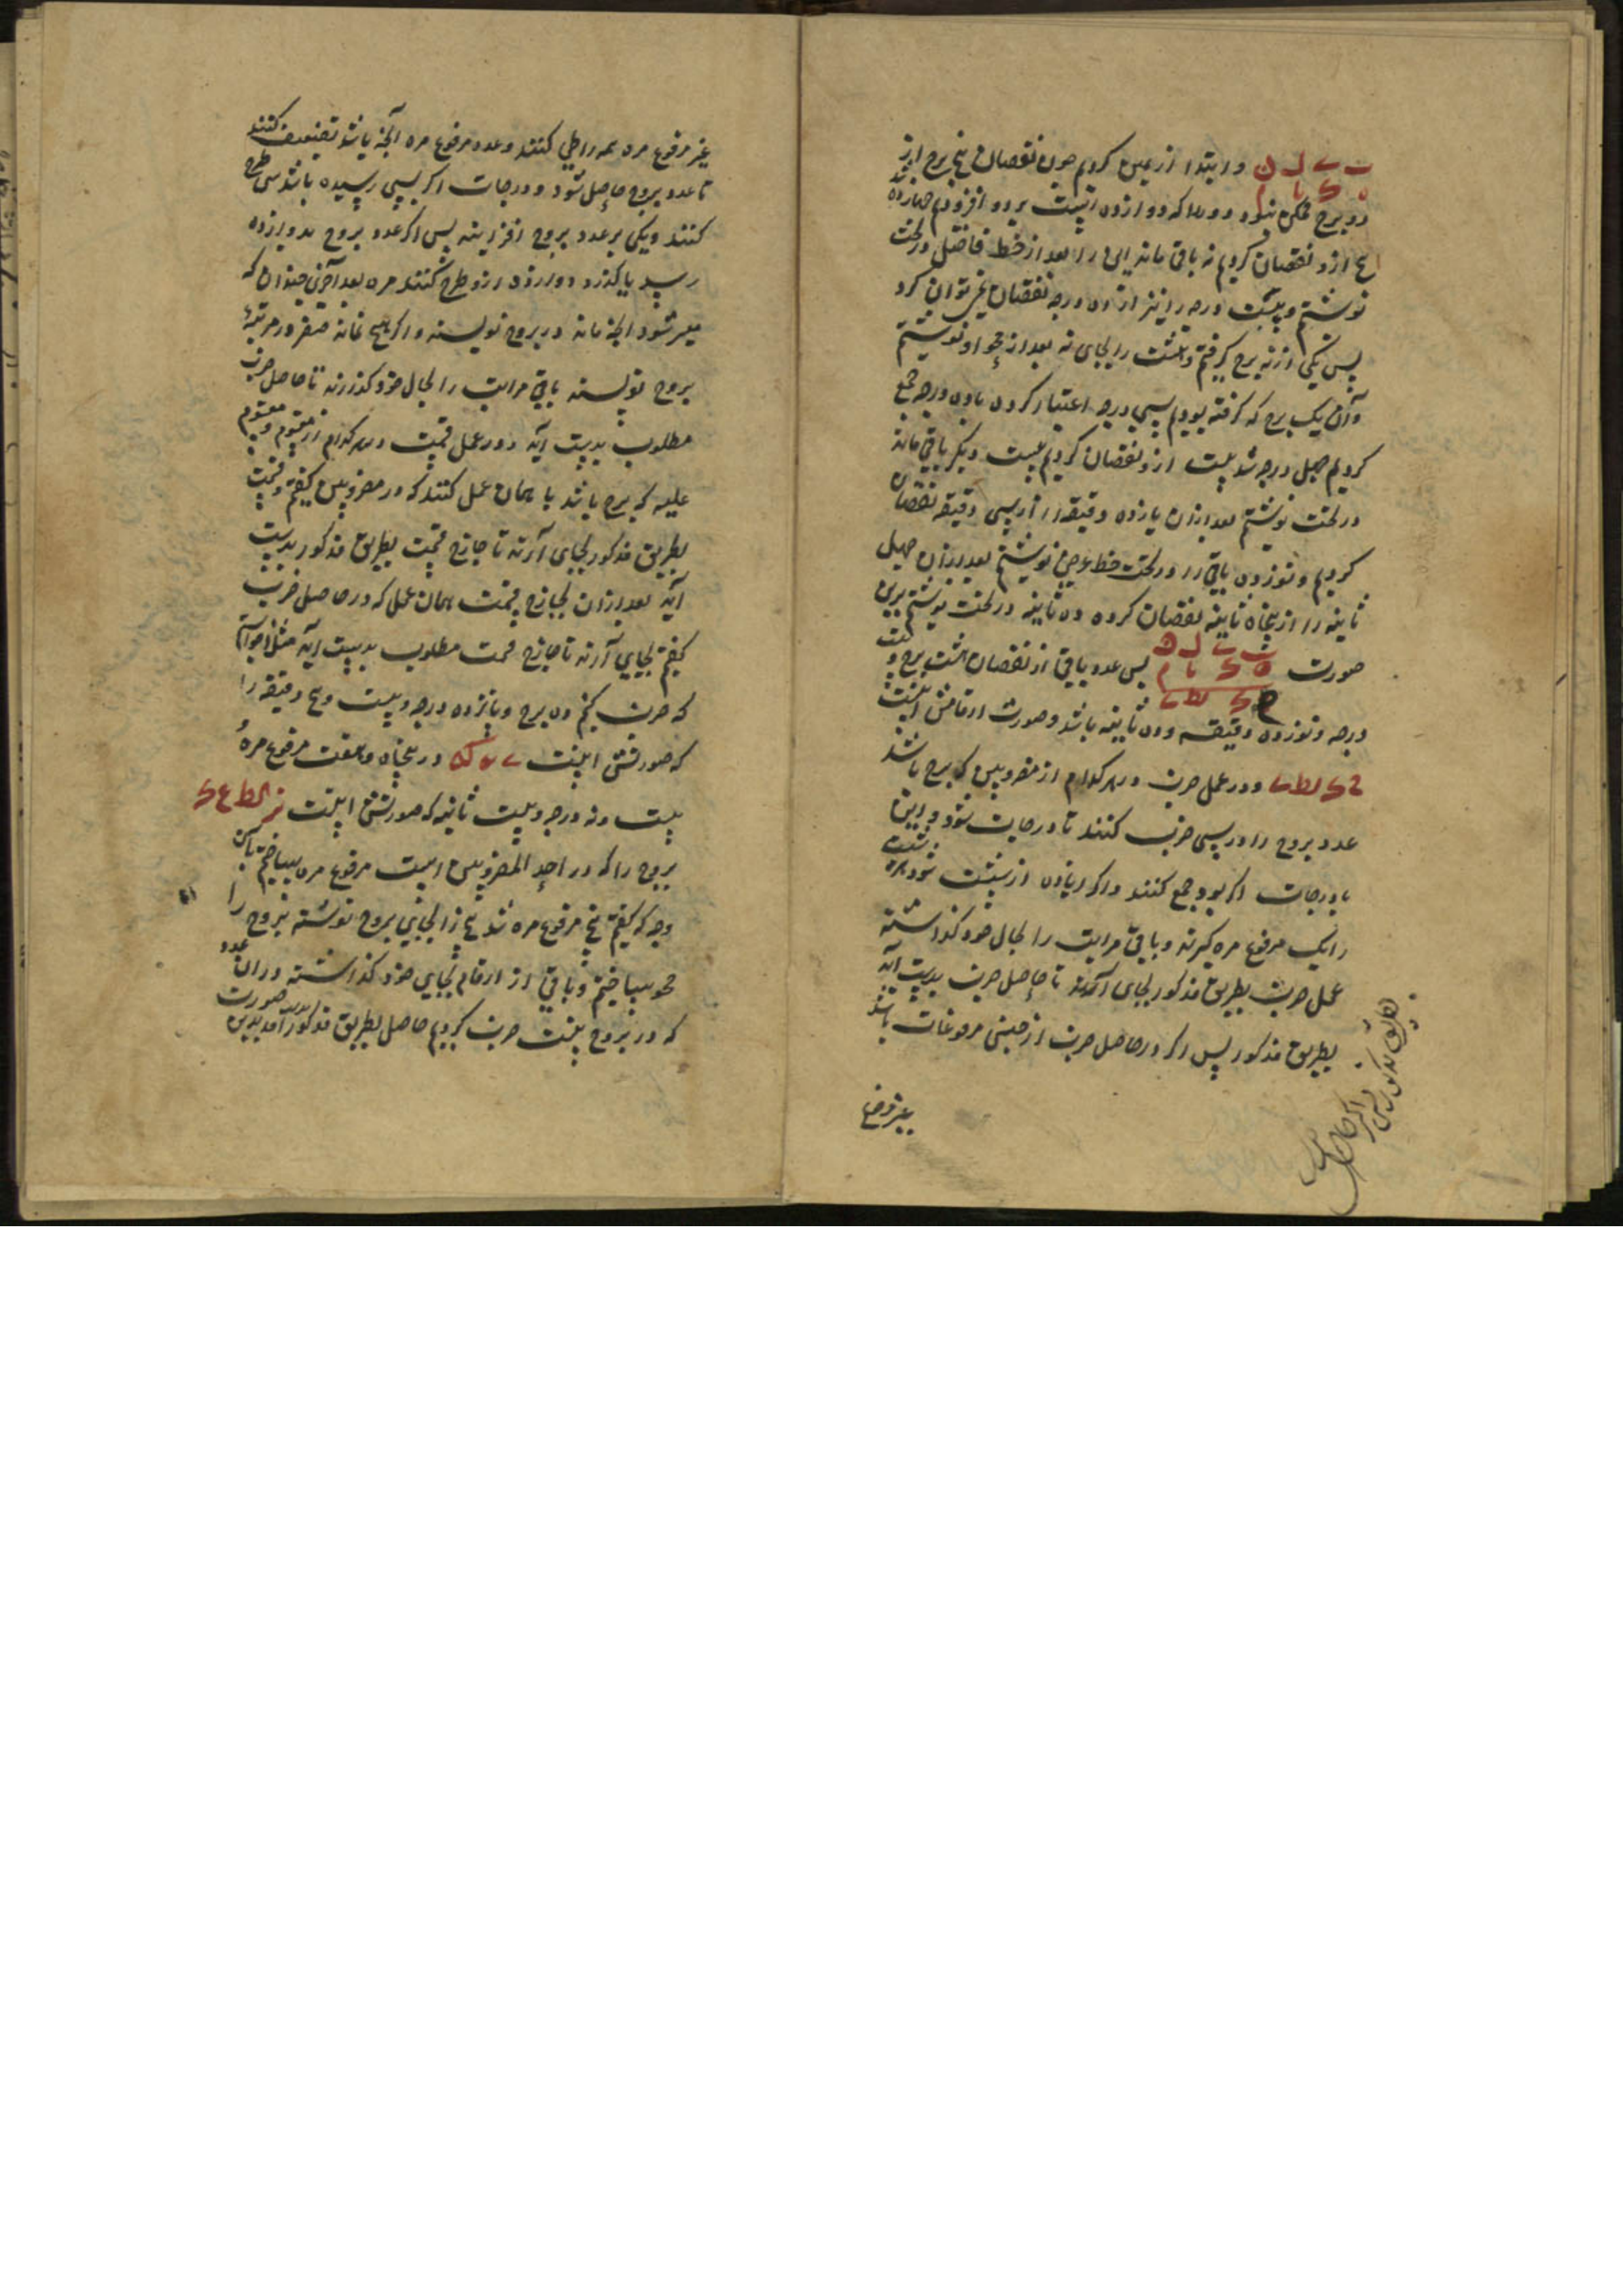 ب ے ل ن وابتدا از یمین کردیم چون نقصان پنج برج از
ه ک یا م دو برج ممکن نبود دور را که دوازده است بر دو افزودیم چهارده شد
پنج ازو نقصان کردیم نه باقی ماند این را بعد از خط فاصل در تحت
نوشتیم و بیست درجه را نیز از ده درجه نقصان نمی توان کرد
پس یکی از نه برج گرفتیم و هشت را بجای نه بعد از محو او نوشتیم
و آن یک برج که گرفته بودیم سی درجه اعتبار کرده با ده درجه جمع
کردیم چهل درجه شد بیست ازو نقصان کردیم بیست دیگر باقی ماند
در تحت نوشتیم بعد ازان یازده دقیقه را از سی دقیقه نقصان
کردیم و نوزده باقی را در تحت خط عرضی نوشتیم بعد ازان چهل
ثانیه را از پنجاه ثانیه نقصان کرده ده ثانیه در تحت نوشتیم برین
صورت ب ے ل ن ه ک یا م ح ک یط ے پس عدد باقی از نقصان هشت برج و بیست
درجه و نوزده دقیقه و ده ثانیه باشد و صورت ارقامش اینست
ح ک یط ے و در عمل ضرب در هر کدام از مضروبین که برج باشد
عدد بروج را در سی ضرب کنند تا درجات شود و این را
با درجات اگر بود جمع کنند و اگر زیاده از شصت شود هر شصت
را یک مرفوع مره گیرند و باقی مراتب را بحال خود گذاشته
عمل ضرب بطریق مذکور بجای آورند تا حاصل ضرب بدست آید
بطریق مذکور پس اگر در حاصل ضرب از جنس مرفوعات باشد
بطریق مذکور پس اگر در حاصل
غیر مرفوع
غیر مرفوع مره همه را طی کنند و عدد مرفوع مره آنچه باشد تضعیف کنند
تا عدد بروج حاصل شود و درجات اگر بسی رسیده باشد سی طرح
کنند و یکی بر عدد بروج افزایند پس اگر عدد بروج بدوازده
رسد یا گذرد دوازده ازو طرح کنند مره بعد اخری چندان که
میسر شود آنچه ماند در بروج نویسند و اگر هیچ نماند صفر در مرتبه
بروج نویسند باقی مراتب را بحال خود گذارند تا حاصل ضرب
مطلوب بدست آید و در عمل قسمت در هر کدام از مقسوم و مقسوم
علیه که برج باشد با همان عمل کنند که در مضروبین گفتیم و قسمت
بطریق مذکور بجای آرند تا خارج قسمت بطریق مذکور بدست
آید بعد ازان بخارج قسمت همان عمل که در حاصل ضرب
گفتیم بجای آرند تا خارج قسمت مطلوب بدست آید مثلا خواستیم
که ضرب کنیم ده برج و پانزده درجه و بیست و پنج دقیقه را
که صورتش اینست ے یه که در پنجاه و هفت مرفوع مره
بیست و نه درجه و بیست ثانیه که صورتش اینست نز کط ع ک
بروج را که در احد المضروبین است مرفوع مره ساختیم بآن
وجه که گفتیم پنج مرفوع مره شد پنج را بجای بروج نوشته بروج را
محو ساختیم و باقی از ارقام بجای خود گذاشته در ان عدد
که در بروج نیست ضرب کردیم حاصل بطریق مذکور آمد بدین صورت